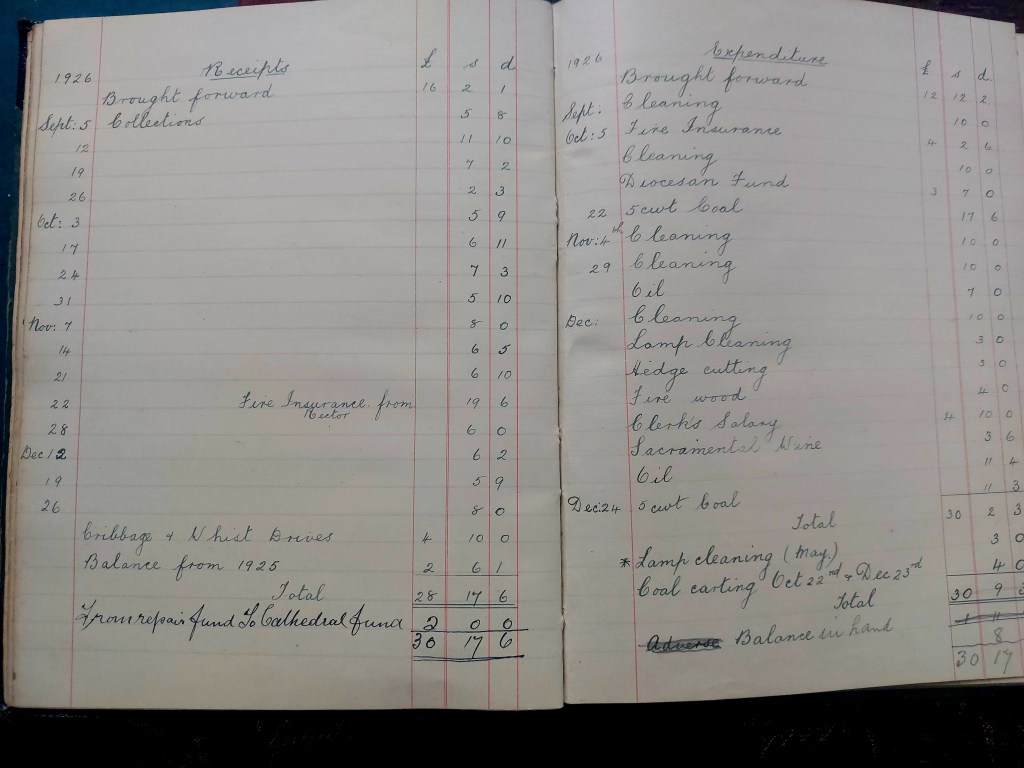 1926 Receipts £ s d
Brought forward 16 2 1
Sept: 5 Collections 5 8
12 11 10
19 7 2
26 2 3
Oct: 3 5 9
17 6 11
24 7 3
31 5 10
Nov: 7 8 0
14 6 5
21 6 10
22 Fire Insurance from Rector 19 6
28 6 0
Dec 12 6 2
19 5 9
26 8 0
Cribbage & Whist Drives 4 10 0
Balance from 1925 2 6 1
Total 28 17 6
From repair fund To Cathedral fund 2 0 0
30 17 6
1926 Expenditure £ s d
Brought forward 12 12 2
Sept: Cleaning 10 0
Oct: 5 Fire Insurance 4 2 6
Cleaning 10 0
Diocesan Fund 3 7 0
22 5 cwt Coal 17 6
Nov: 4th Cleaning 10 0
29 Cleaning 10 0
Oil 7 0
Dec: Cleaning 10 0
Lamp Cleaning 3 0
Hedge cutting 3 0
Fire wood 4 0
Clerk's Salary 4 10 0
Sacramental Wine 3 6
Oil 11 4
Dec: 24 5 cwt Coal 11 3
Total 30 2 3
* Lamp cleaning (May.) 3 0
Coal carting Oct 22nd & Dec 23rd 4 0
Total 30 9
Adverse Balance in hand 8
30 17